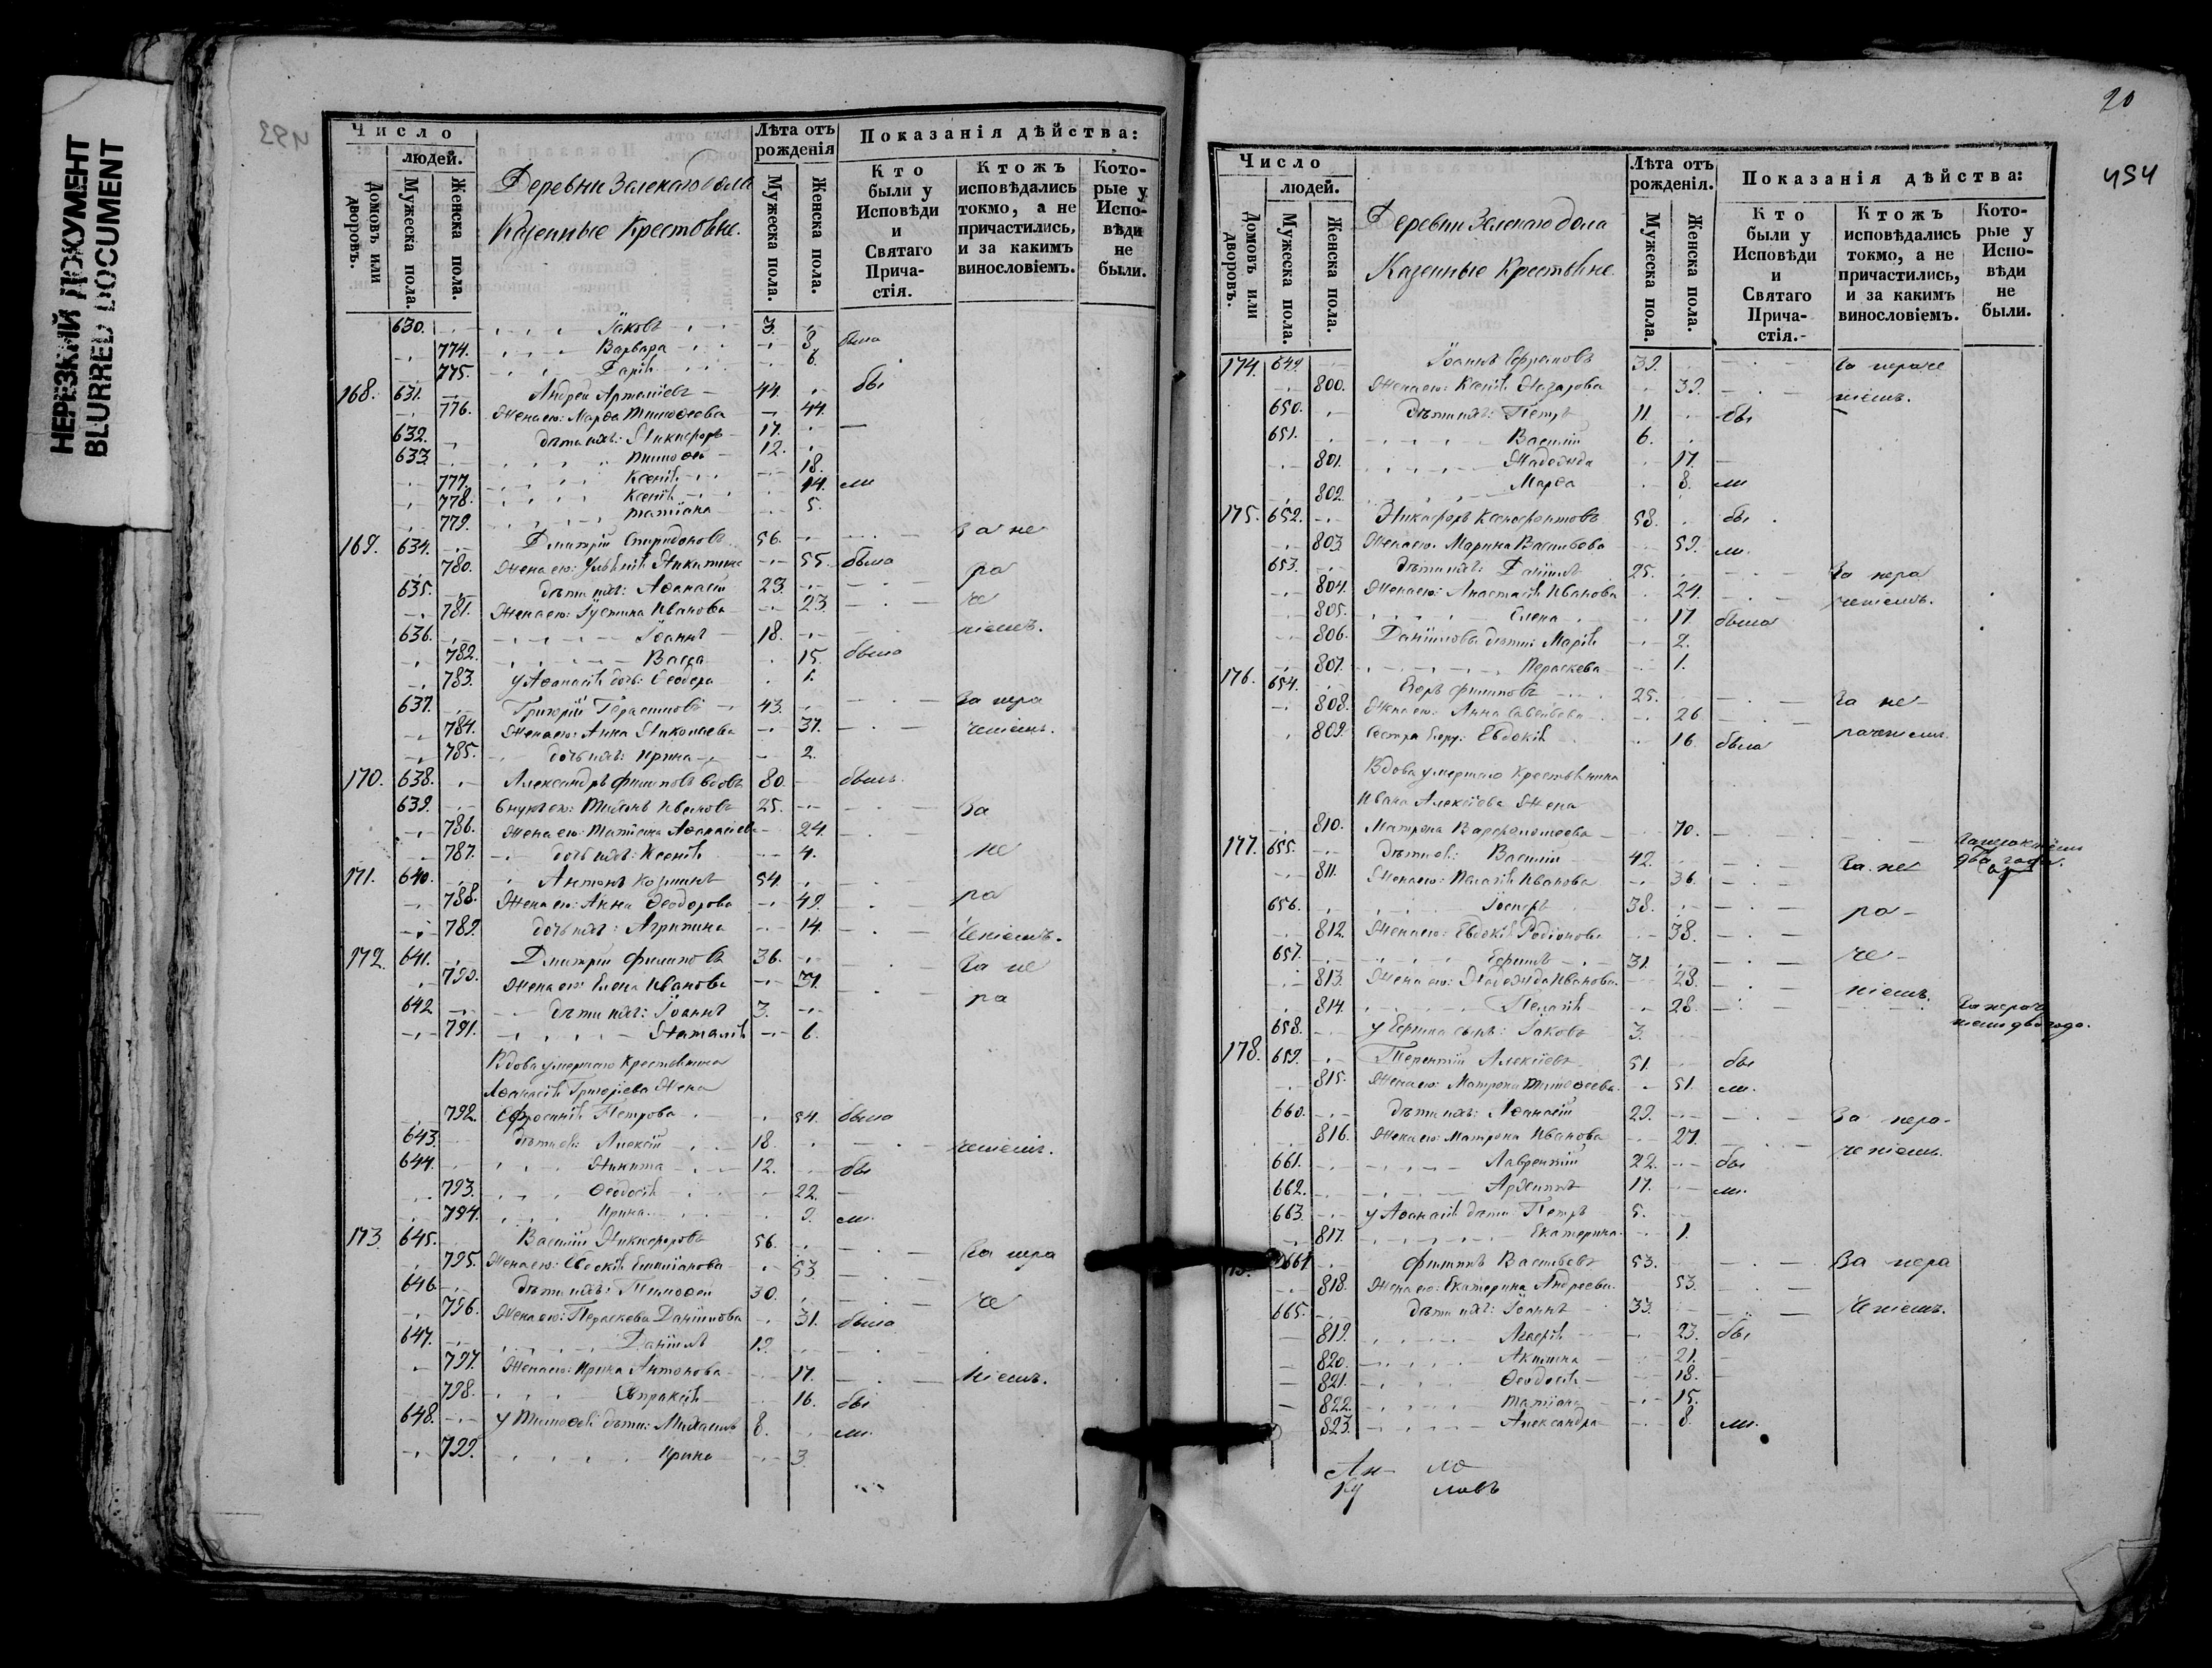 НЕРЕЗКИЙ ДОКУМЕНТ
BLURRED DOCUMENT
Число
людей.
Домовъ или дворовъ.
Мужеска пола.
Женска пола.
Деревни Зеленаго дола
Казенные Крестьяне.
Лѣта отъ рожденія
Мужеска пола.
Женска пола.
Показанія дѣйства:
Кто были у Исповѣди и Святаго Причастія.
Ктожъ исповѣдались токмо, а не причастились, и за какимъ винословіемъ.
Которые у Исповѣди не были.
630. Іаковъ 3.
774. Варвара 8. была
775. Дарія 6.
168. 631. Андрей Артеміевъ 44. бы
776. Жена его: Марѳа Тимоѳеева 44.
632. дѣти ихъ: Никифоръ 17. —
633. Тимоѳей 12.
777. Ксенія 18.
778. Ксенія 14. ли
779. Татіана 5.
169. 634. Димитрій Спиридоновъ 56. За не
780. Жена его: Уліянія Никитина 55. была
635. дѣти ихъ: Аѳанасій 23. ра
781. Жена его: Іустина Иванова 23. че
636. Іоаннъ 18. ніемъ.
782. Васса 15. была
783. у Аѳанасія дочь: Ѳеодора 1.
637. Григорій Герасимовъ 43. За нера
784. Жена его: Анна Николаева 37. ченіемъ.
785. дочь ихъ: Ирина 2.
170. 638. Александръ Филиповъ вдовъ 80. былъ.
639. внукъ его: Иванова 25. За
786. Жена его: Татіана Аѳанасіева 24.
787. дочь ихъ: Ксенія 4. не
171. 640. Антонъ Козминъ 54.
788. Жена его: Анна Ѳеодорова 49. ра
789. дочь ихъ: Агрипина 14. ченіемъ.
172. 641. Димитрій Филиповъ 36. За не
790. Жена его: Елена Иванова 31.
642. дѣти ихъ: Іоаннъ 3. ра
791. Наталія 6.
Вдова умершаго Крестьянина
Аѳанасія Григоріева Жена
792. Ефросинія Петрова 54. была
643. дѣти ея: Алексій 18. ченіемъ.
644. Никита 12. бы
793. Ѳеодосія 22. —
794. Ирина 9. ли.
173. 645. Василій Никифоровъ 56. За нера
795. Жена его: Евдокія Емиліанова 53.
646. дѣти ихъ: Тимоѳей 30. че
796. Жена его: Параскева Даніилова 31. была
647. Даніилъ 19.
797. Жена его: Ирина Антонова 17. ніемъ.
798. Евпраксія 16. бы
648. у Тимоѳея дѣти: Михаилъ 8. ли.
799. Ирина 3.
20
494
Число
людей.
Домовъ или дворовъ.
Мужеска пола.
Женска пола.
Деревни Зеленаго дола
Казенные Крестьяне.
Лѣта отъ рожденія.
Мужеска пола.
Женска пола.
Показанія дѣйства:
Кто были у Исповѣди и Святаго Причастія.
Ктожъ исповѣдались токмо, а не причастились, и за какимъ винословіемъ.
Которые у Исповѣди не были.
174. 649. Іоаннъ Ефремовъ 39. За нераче
800. Жена его: Ксенія Назарова 39. ніемъ.
650. дѣти ихъ: Петръ 11. бы
651. Василій 6.
801. Надежда 17. —
802. Марѳа 8. ли
175. 652. Никифоръ Ксенофонтовъ 58. бы
803. Жена его: Марина Васильева 59. ли.
653. дѣти ихъ: Даніилъ 25. За нера
804. Жена его: Анастасія Иванова 24. ченіемъ.
805. Елена 17. была
806. Даніиловы дѣти: Марія 2.
807. Параскева 1.
176. 654. Егоръ Филиповъ 25. За не-
808. Жена его: Анна Савельева 26.
809. Сестра Егору: Евдокія 16. была раченіемъ.
Вдова умершаго Крестьянина
Ивана Алексіева Жена
810. Матрона Варѳоломеева 70.
177. 655. дѣти ея: Василій 42. За не два года.
811. Жена его: Пелагія Иванова 36.
656. Іосифъ 38. ра-
812. Жена его: Евдокія Родіонова 38.
657. Ефимъ 31. че-
813. Жена его: Надежда Иванова 28. ніемъ.
814. Пелагія 28. За нераче
658. у Ефима сынъ: Іаковъ 3. ніемъ два года.
178. 659. Терентій Алексіевъ 51. бы
815. Жена его: Матрона Тимоѳеева 51. ли.
660. дѣти ихъ: Аѳанасій 29. За нера-
816. Жена его: Матрона Иванова 27. ченіемъ.
661. Лаврентій 22. бы
662. Архиппъ 17. ли.
663. у Аѳанасія дѣти: Петръ 5.
817. Екатерина 1.
664. Филиппъ Васильевъ 53. За нера
818. Жена его: Екатерина Андреева 53.
665. дѣти ихъ: Іоаннъ 33. ченіемъ.
819. 23. бы
820. Акилина 21. —
821. Ѳеодосія 18. —
822. Татіана 15.
823. Александра 8. ли.